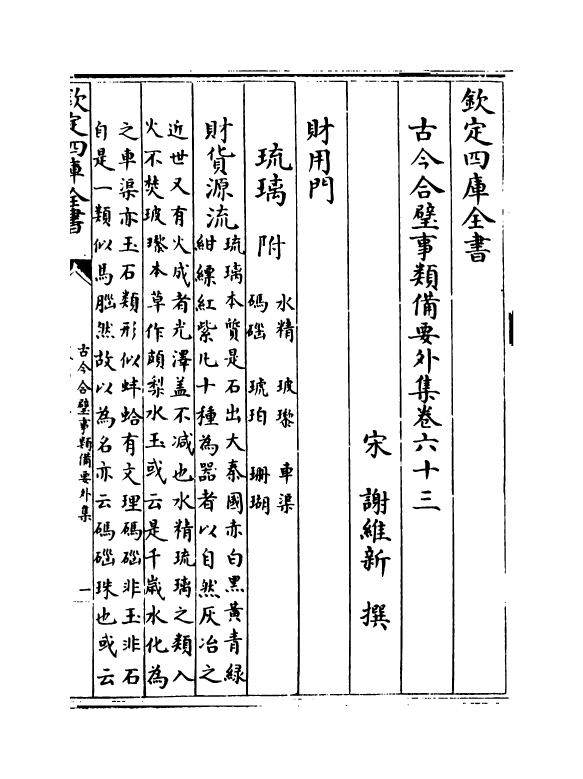 欽定四庫全書
古今合璧事類備要外集卷六十三
宋 謝維新 撰
財用門
琉璃 附 水精 玻瓈 車渠
碼碯 琥珀 珊瑚
財貨源流 琉璃本質是石出大秦國亦白黑黃青綠
紺縹紅紫凡十種為器者以自然灰冶之
近世又有火成者光澤蓋不減也水精琉璃之類入
火不焚玻瓈本草作頗梨水玉或云是千歲水化為
之車渠亦玉石類形似蚌蛤有文理碼碯非玉非石
自是一類似馬腦然故以為名亦云碼碯珠也或云
欽定四庫全書
古今合璧事類備要外集
一